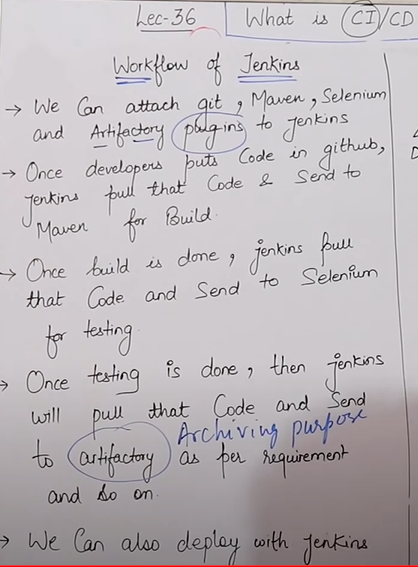 Lec-36
What is CI/CD
Workflow of Jenkins
→ We Can attach git, Maven, Selenium
and Artifactory plugins to jenkins
→ Once developers puts Code in github,
jenkins pull that Code & Send to
Maven for Build.
→ Once build is done, jenkins pull
that Code and Send to Selenium
for testing.
→ Once testing is done, then jenkins
will pull that Code and Send
Archiving purpose
to artifactory as per requirement
and so on.
→ We Can also deploy with jenkins